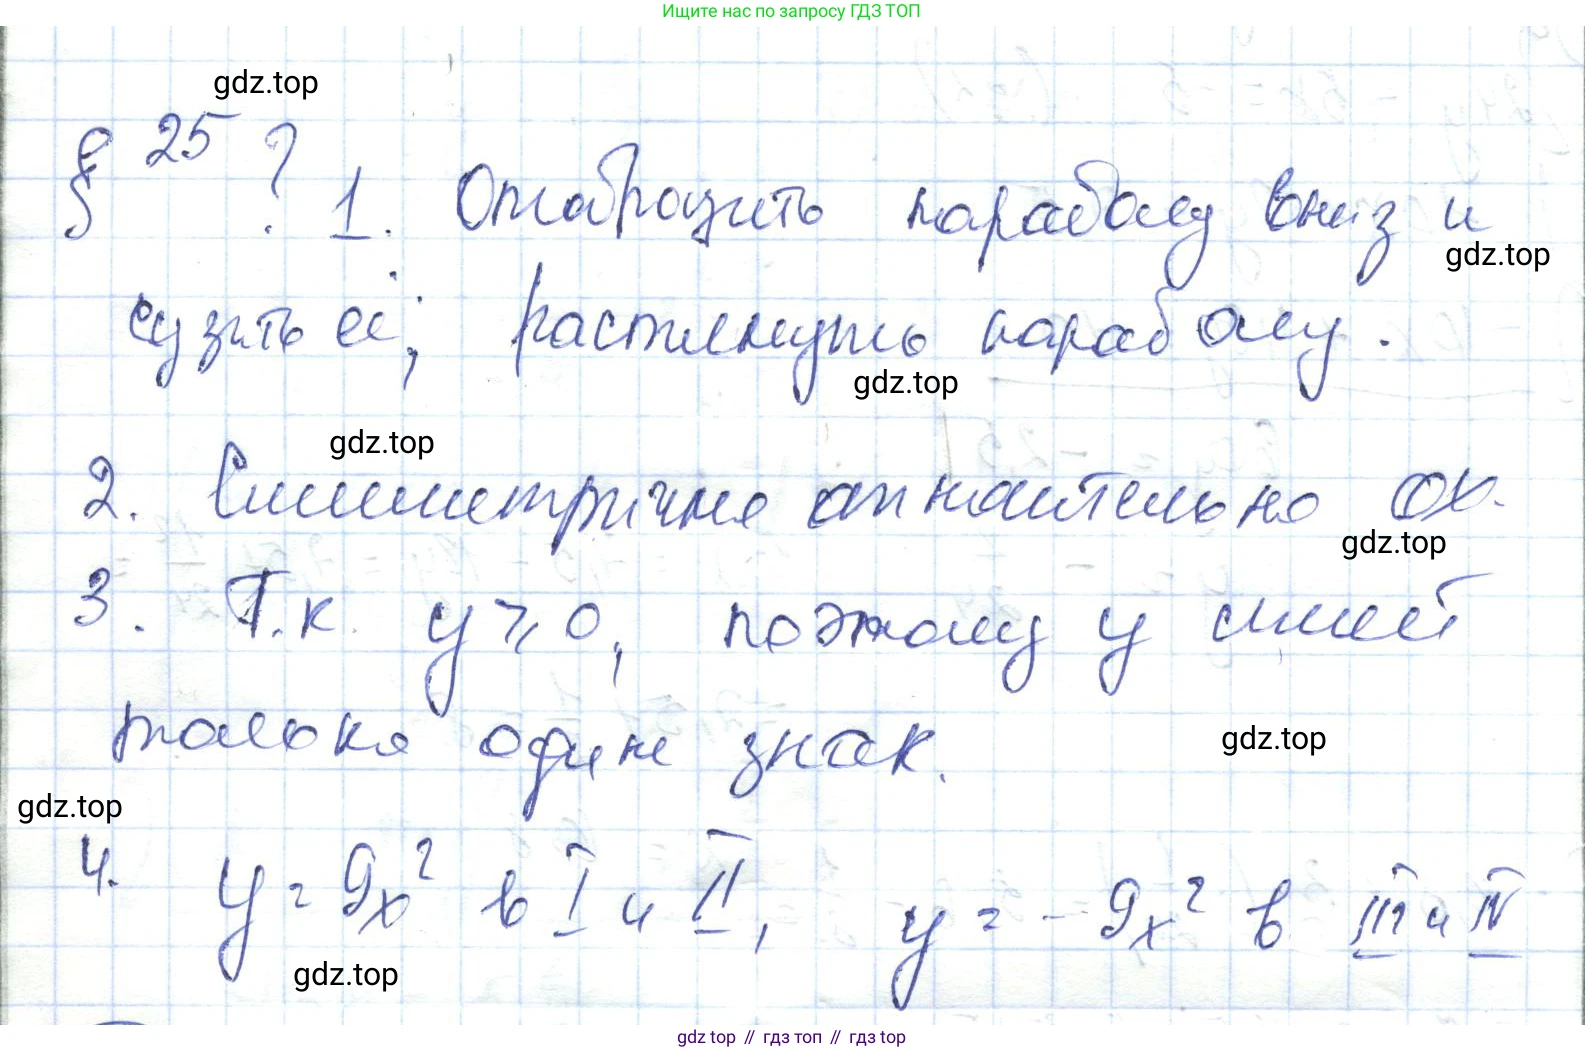 Ищите нас по запросу ГДЗ ТОП
gdz.top
§ 25 ? 1. Отобразить параболу вниз и
gdz.top
сузить её; растянуть параболу.
gdz.top
gdz.top
2. Симметричне относительно OX.
gdz.top
3. Т.к. y ⩾ 0, поэтому y имеет
только один знак.
gdz.top
gdz.top
4. y = 9x² в I и II, y = -9x² в III и IV
gdz.top
gdz.top // гдз топ // гдз top